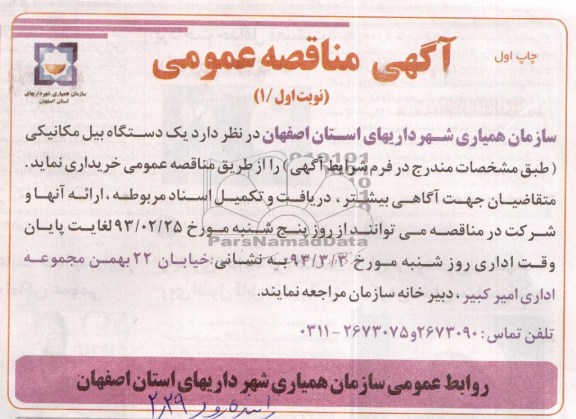 چاپ اول
آگهی مناقصه عمومی
(نوبت اول /۱)
سازمان همیاری شهرداریهای
استان اصفهان
سازمان همیاری شهرداریهای استان اصفهان در نظر دارد یک دستگاه بیل مکانیکی
(طبق مشخصات مندرج در فرم شرایط آگهی) را از طریق مناقصه عمومی خریداری نماید.
متقاضیان جهت آگاهی بیشتر، دریافت و تکمیل اسناد مربوطه، ارائه آنها و
شرکت در مناقصه می توانند از روز پنج شنبه مورخ ۹۳/۰۲/۲۵ لغایت پایان
وقت اداری روز شنبه مورخ ۹۳/۳/۳ به نشانی: خیابان ۲۲ بهمن مجموعه
اداری امیر کبیر، دبیر خانه سازمان مراجعه نمایند.
تلفن تماس: ۲۶۷۳۰۹۰ و ۲۶۷۳۰۷۵-۰۳۱۱
ParsNamadData
روابط عمومی سازمان همیاری شهرداریهای استان اصفهان
۲،۲۹